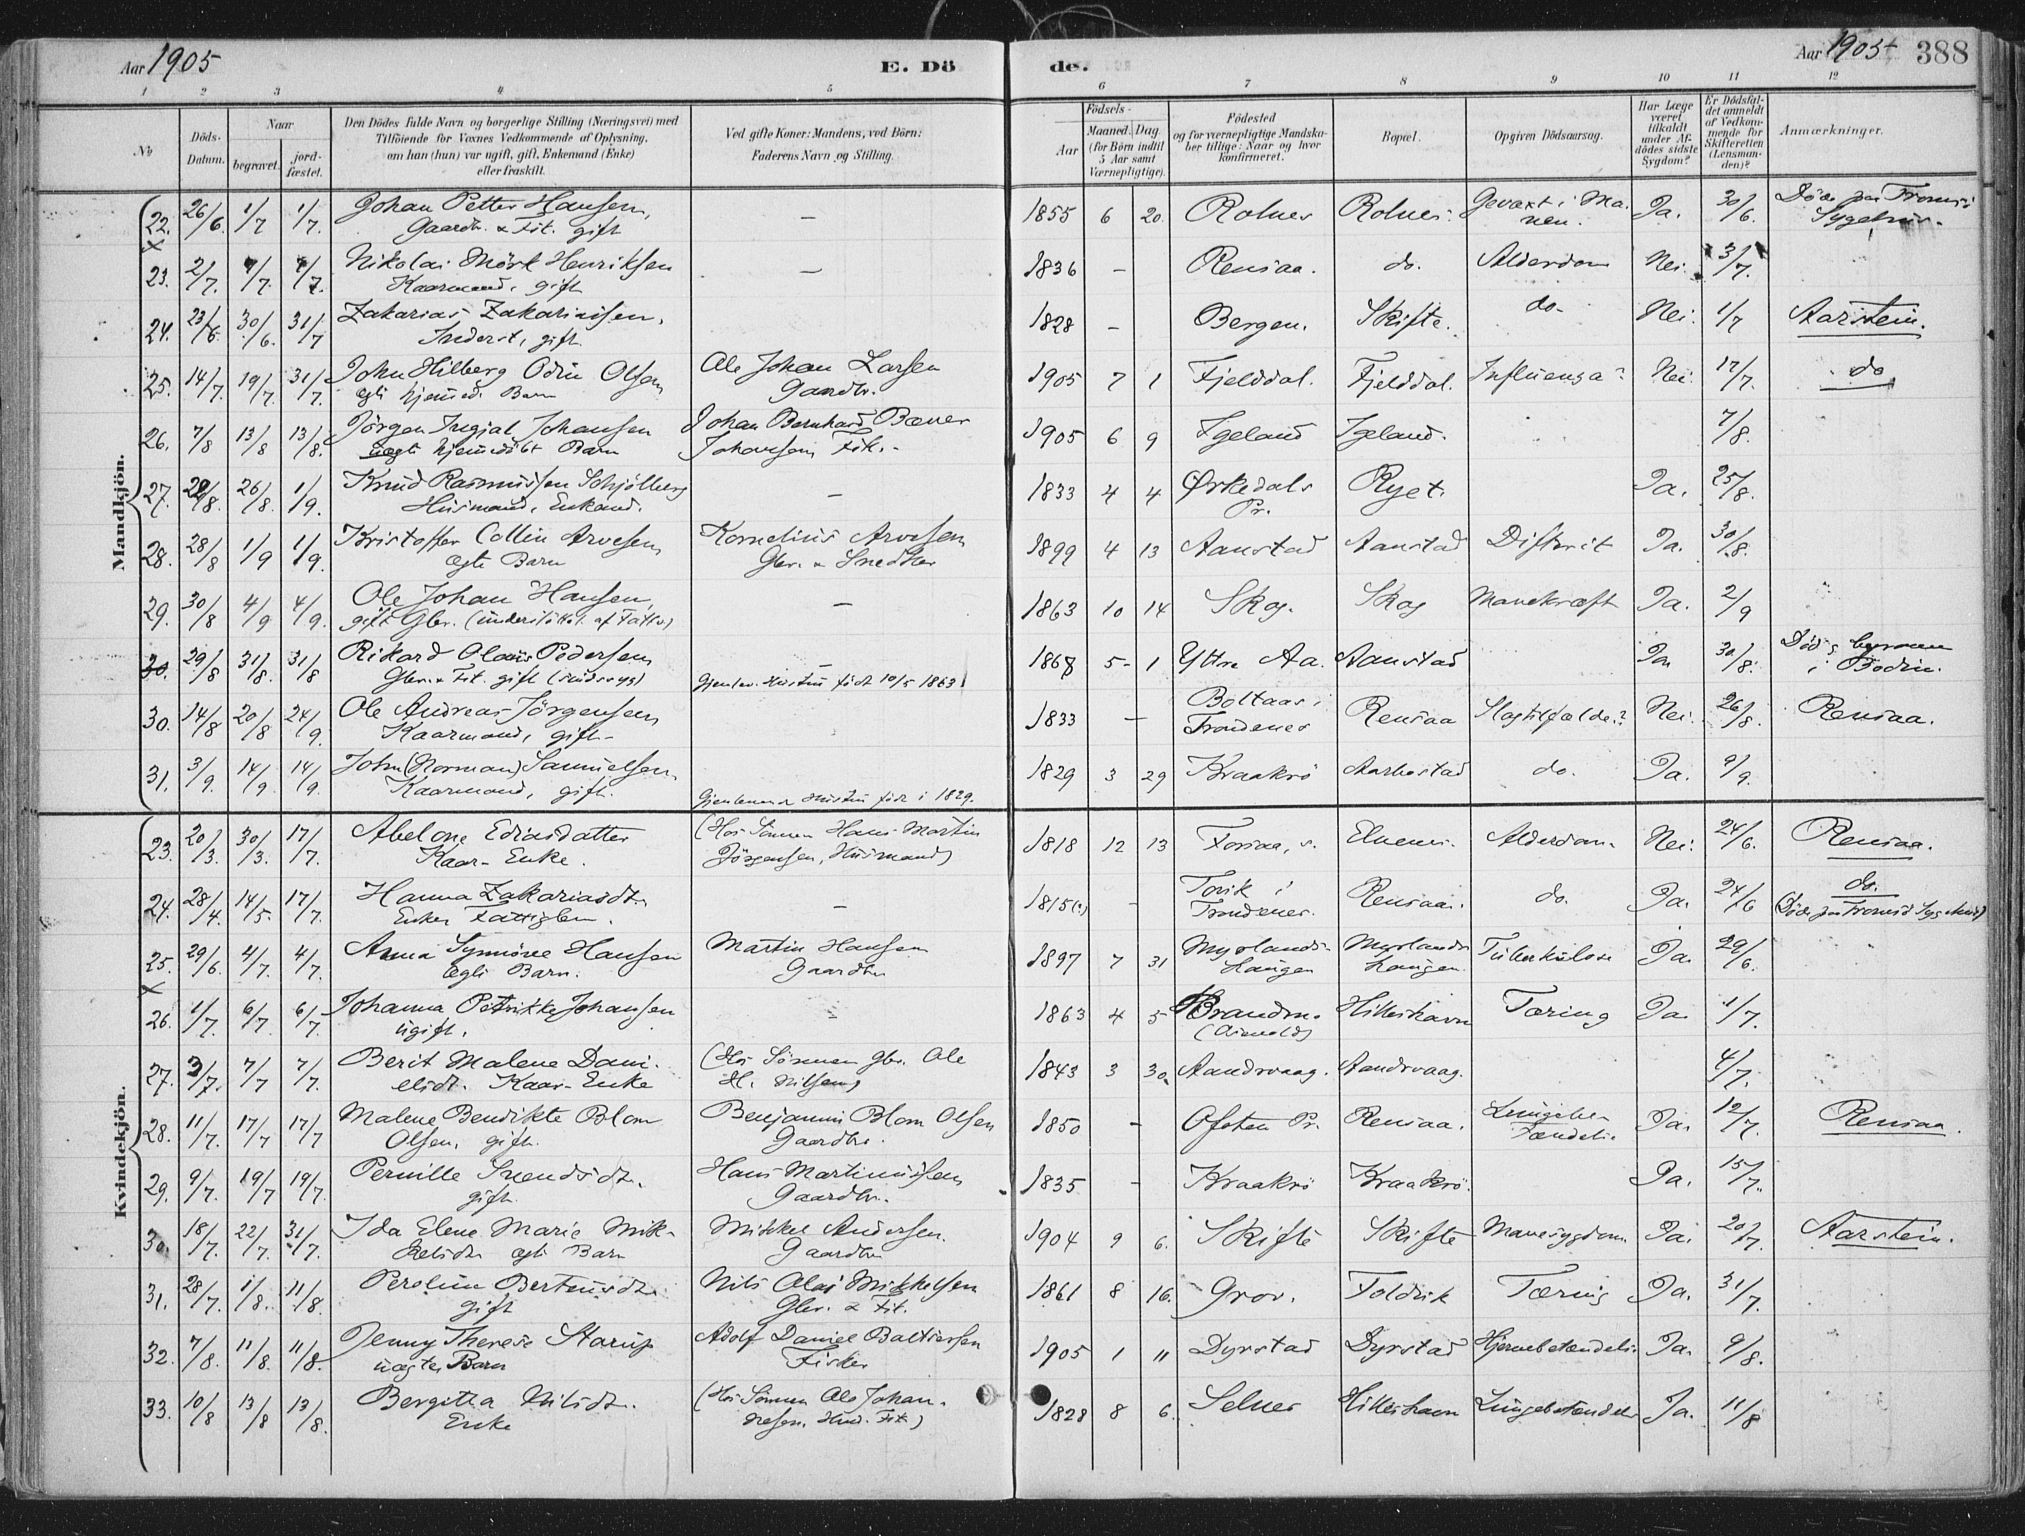 Aar 1905
E. Dö
de.
Aar 1905
388
1 2 3 4 5 6 7 8 9 10 11 12
No
Döds-
Datum.
Naar
begravet.
jord-
fæstet.
Den Dödes fulde Navn og borgerlige Stilling (Næringsvei) med
Tilföiende for Voxnes Vedkommende af Oplysning,
om han (hun) var ugift, gift, Enkemand (Enke)
eller fraskilt.
Ved gifte Koner: Mandens, ved Börn:
Faderens Navn og Stilling.
Födsels-
Aar
Maaned. Dag.
(for Börn indtil
5 Aar samt
Værnepligtige).
Födested
og for værnepligtige Mandska-
ber tillige: Naar og hvor
konfirmeret.
Bopæl.
Opgiven Dödsaarsag.
Har Læge
været
tilkaldt
under Af-
dödes sidste
Sygdom?
Er Dödsfal-
det anmeldt
af Vedkom-
mende for
Skifteretten
(Lensman-
den)?
Anmærkninger.
Mandkjön.
22. 26/6. 1/7 1/7. Johan Petter Hansen, – 1855 6 20. Rolnes Rolnes. Gevæxt i Ma- Ja. 30/6. Döde paa Tromsö
Gaardbr. & Fisk. gift nen. Sygehus.
23. 2/7. 4/7. 4/7. Nikolai Mörk Henriksen – 1836 – Rensaa. do. Alderdom Nei. 3/7.
Kaarmand, gift
24. 23/6. 30/6. 31/7 Zakarias Zakariassen, 1828 – Bergen. Skifte. do. Nei. 1/7 Aarstein.
Inderst, gift
25. 14/7. 19/7. 31/7. John Hilberg Odin Olsen Ole Johan Larsen 1905 7 1 Fjelddal. Fjelddal. Influenza? Nei. 17/7. do
egte hjemmed. Barn Gaardbr.
26. 7/8 13/8 13/8. Jörgen Ingjal Johansen Johan Bernhard Bæver 1905 6 9 Igeland Igeland. 7/8.
uegte hjemmedöbt Barn Johansen Fisk.
27. 22/8. 26/8. 1/9. Knud Rasmussen Schjölberg – 1833 4 4 Ørkedals Ryet. Ja. 25/8.
Husmand, Enkemd. Pr.
28. 28/8 1/9 1/9. Kristoffer Collin Arvesen Kornelius Arvesen 1899 4 13 Aanstad Aanstad Difterit Ja. 30/8.
egte Barn Gbr. & Snedker
29. 30/8 4/9 4/9. Ole Johan Hansen, – 1863 10 14 Skog. Skog Mavekræft Ja. 2/9
gift Gbr. (understöttet af Fattv.)
30. 29/8 31/8. 31/8 Rikard Olaus Pedersen – 1868 5 1 Yttre Aa. Aanstad Ja 30/8. Död
Gbr. & Fisk. gift (sindssyg) Gjenlev. Hustru födt 10/5 1863 i Bodin.
30. 14/8 20/8 24/9. Ole Andreas Jörgensen 1833 – Boltaas i Rensaa Slagtilfælde? Nei. 26/8. Rensaa.
Kaarmand, gift Trondenes
31. 3/9. 14/9. 14/9. John (Norman) Samuelsen, 1829 3 29 Kraakrö Aarbostad do. Ja. 9/9.
Kaarmand, gift. Gjenlevende Hustru födt i 1829.
Kvindekjön.
23. 20/3. 30/3. 17/7. Abelone Ediasdatter (Hos Sönnen Hans Martin 1818 12 13 Forsaa, s. Elvenes. Alderdom. Nei. 24/6. Rensaa.
Kaar-Enke. Jörgensen, Husmand)
24. 28/4. 14/5. 17/7. Hanna Zakariasdt. – 1815(?) – Torik i Rensaa. do. Ja. 24/6 do.
Enke, Fattiglem. Trondenes. (Döde paa Tromsö Sygehus)
25. 29/6. 4/7. 4/7. Anna Synnöve Hansen Martin Hansen 1897 7 31 Myrlands- Myrlands- Tuberkulose Ja. 29/6.
egte Barn. Gaardbr haugen haugen
26. 1/7. 6/7. 6/7. Johanna Petrikke Johansen – 1863 4 5 Brandvn. Hilleshavn Tæring Ja. 1/7.
ugift.
27. 3/7. 7/7 7/7. Berit Malene Dani- (Hos Sönnen Gbr. Ole 1843 3 30. Aandvaag. Aandvaag. 4/7.
elsdt. Kaar-Enke H. Nilsen)
28. 11/7. 17/7 17/7 Malene Bendikte Blom Benjamin Blom Olsen 1850 – Ofoten Pr. Rensaa. Lungebe- Ja. 12/7. Rensaa.
Olsen, gift. Gaardbr. tændelse
29. 9/7. 19/7 19/7. Pernille Svendsdt. Hans Martinussen 1835 – Kraakrö Kraakrö. Ja. 15/7.
gift. Gaardbr.
30. 18/7. 22/7. 31/7. Ida Elene Marie Mik- Mikkel Andersen. 1904 9 6. Skifte Skifte Mavesygdom Ja. 20/7. Aarstein.
kelsdt. egte Barn Gaardbr
31. 28/7. 1/8. 11/8. Peroline Berteusdt. Nils Olai Mikkelsen 1861 8 16. Grov. Foldvik Tæring Ja. 31/7.
gift Gbr. & Fisk.
32. 7/8. 11/8. 11/8. Jenny Therese Starup Adolf Daniel Baltsersen 1905 1 11 Dyrstad Dyrstad Hjernebetændelse Ja. 9/8.
uegte Barn Fisker
33. 10/8 13/8 13/8. Bergitta Nilsdt. (Hos Sönnen Ole Johan- 1828 8 6. Selnes Hilleshavn Lungebetændelse Ja. 11/8
Enke nesen, Husm. Fisk.)